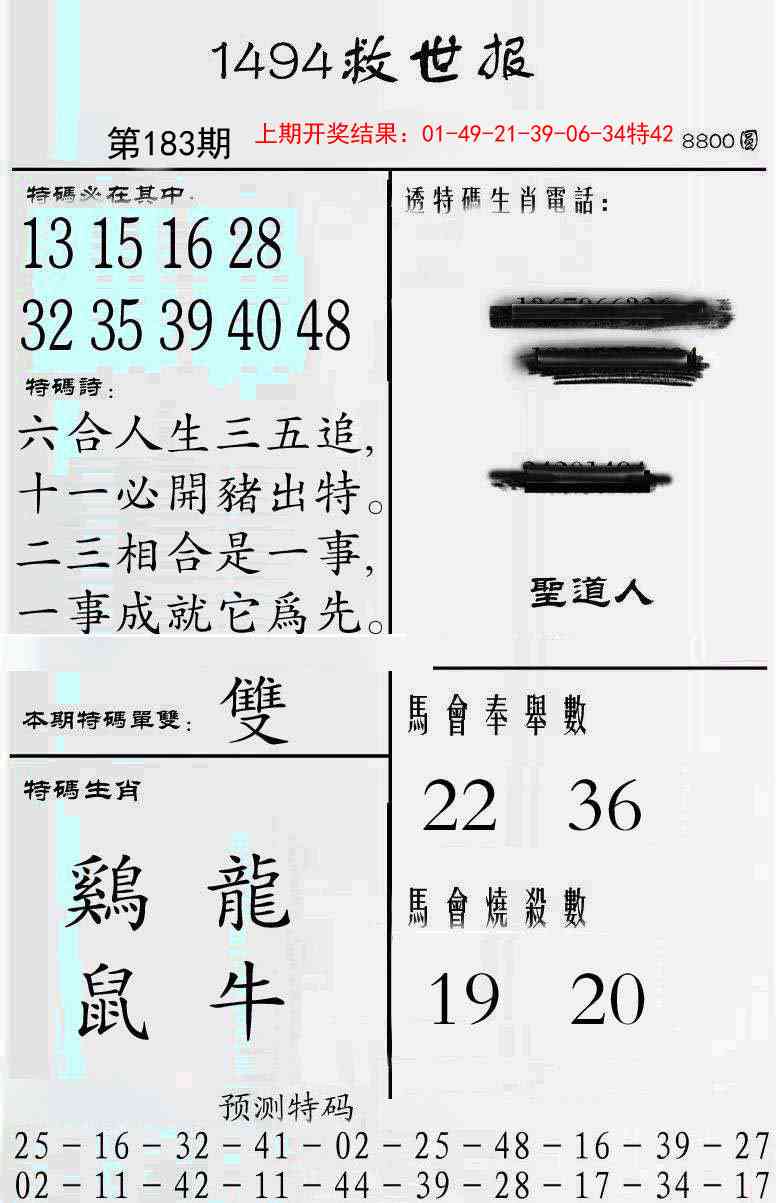 1494救世报
第183期 上期开奖结果：01-49-21-39-06-34特42 8800圓
特碼必在其中.
13 15 16 28
32 35 39 40 48
特碼詩：
六合人生三五追,
十一必開豬出特。
二三相合是一事,
一事成就它爲先。
透特碼生肖電話：
聖道人
本期特碼單雙： 雙
特碼生肖
鷄 龍
鼠 牛
馬會奉舉數
22 36
馬會燒殺數
19 20
预测特码
25－16－32－41－02－25－48－16－39－27
02－11－42－11－44－39－28－17－34－17